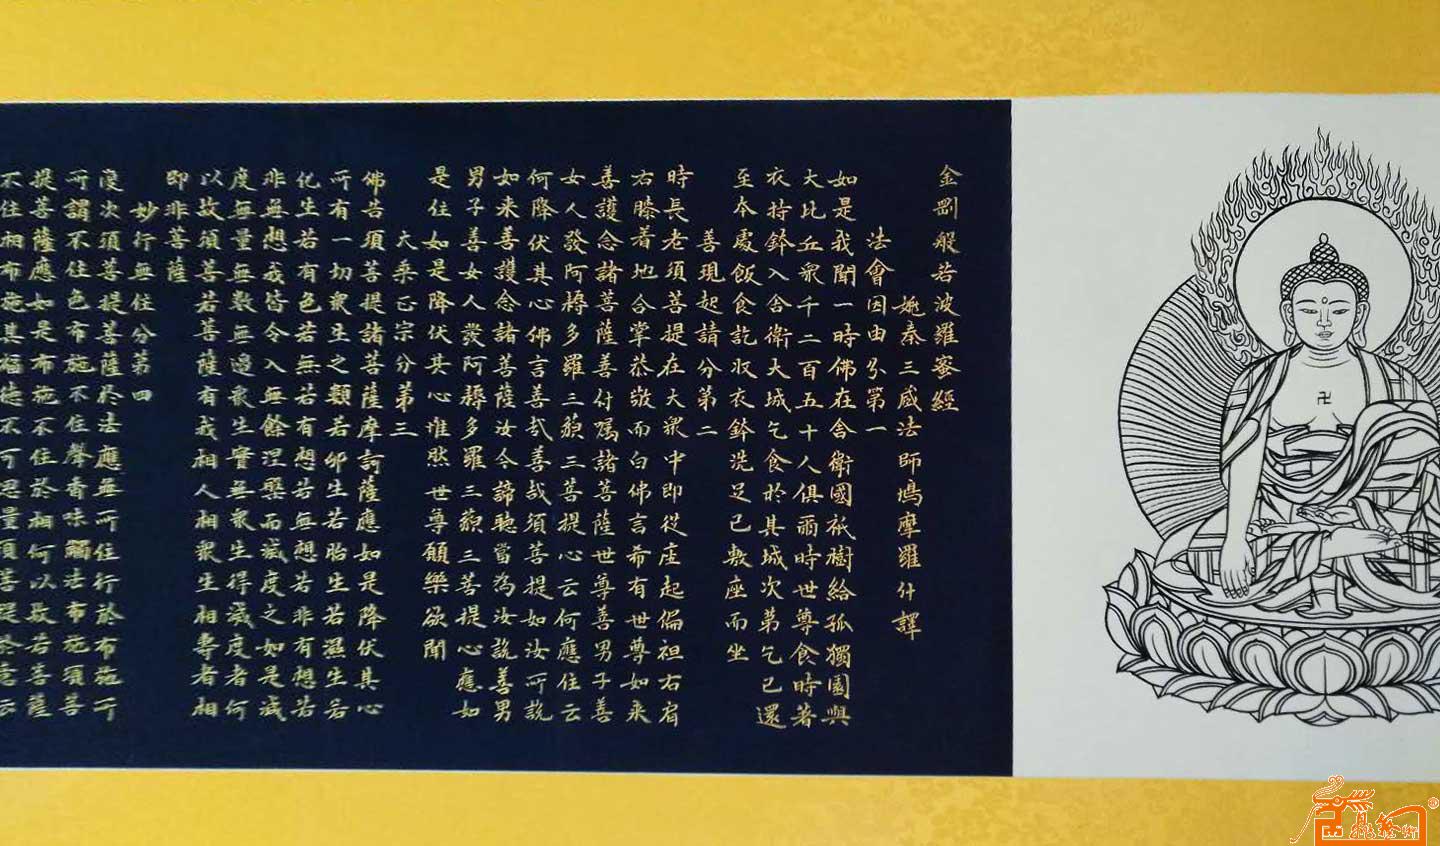 金剛般若波羅蜜經
姚秦三藏法師鳩摩羅什譯
法會因由分第一
如是我聞一時佛在舍衛國祇樹給孤獨園與
大比丘眾千二百五十人俱爾時世尊食時著
衣持鉢入舍衛大城乞食於其城次第乞已還
至本處飯食訖收衣鉢洗足已敷座而坐
善現起請分第二
時長老須菩提在大眾中即從座起偏袒右肩
右膝着地合掌恭敬而白佛言希有世尊如來
善護念諸菩薩善付囑諸菩薩世尊善男子善
女人發阿耨多羅三藐三菩提心云何應住云
何降伏其心佛言善哉善哉須菩提如汝所說
如来善護念諸菩薩善付囑諸菩薩汝今諦聽當為汝說善男
男子善女人發阿耨多羅三藐三菩提心應如
是住如是降伏其心唯然世尊願樂欲聞
大乘正宗分第三
佛告須菩提諸菩薩摩訶薩應如是降伏其心
所有一切眾生之類若卵生若胎生若濕生若
化生若有色若無色若有想若無想若非有想若
非無想我皆令入無餘涅槃而滅度之如是滅
度無量無數無邊眾生實無眾生得滅度者何
以故須菩提若菩薩有我相人相眾生相壽者相
即非菩薩
妙行無住分第四
復次須菩提菩薩於法應無所住行於布施所
所謂不住色布施不住聲香味觸法布施須菩
提菩薩應如是布施不住於相何以故若菩薩
不住相布施其福德不可思量須菩提於意云